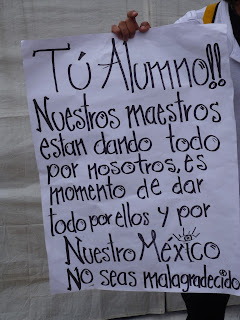 Tú Alumno!!
Nuestros maestros
estan dando todo
por nosotros, es
momento de dar
todo por ellos y por
Nuestro México
No seas malagradecido